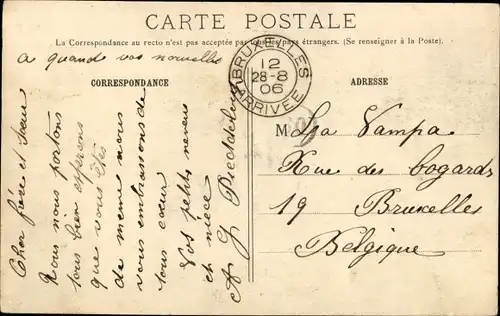 CARTE POSTALE
La Correspondance au recto n'est pas acceptée par tous les pays étrangers. (Se renseigner à la Poste).
a quand vos nouvelles
CORRESPONDANCE
ADRESSE
BRUXELLES
12
28-8
06
ARRIVÉE
Cher frère et sœur
Nous nous portons
tous bien espérons
que vous êtes
de meme nous
vous embrassons de
tout cœur
Vos petits neveux
et niece
A G
M La Vampa
Rue des Bogards
19 Bruxelles
Belgique